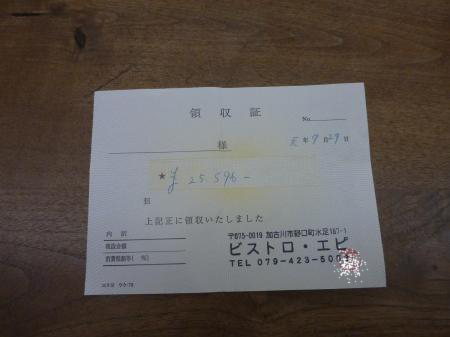 領収証
No.
様
元年9月29日
★ ¥25,596-
但
上記正に領収いたしました
内訳
税抜金額
消費税額等(　%)
〒675-0019 加古川市野口町水足187-1
ビストロ・エピ
TEL 079-423-50